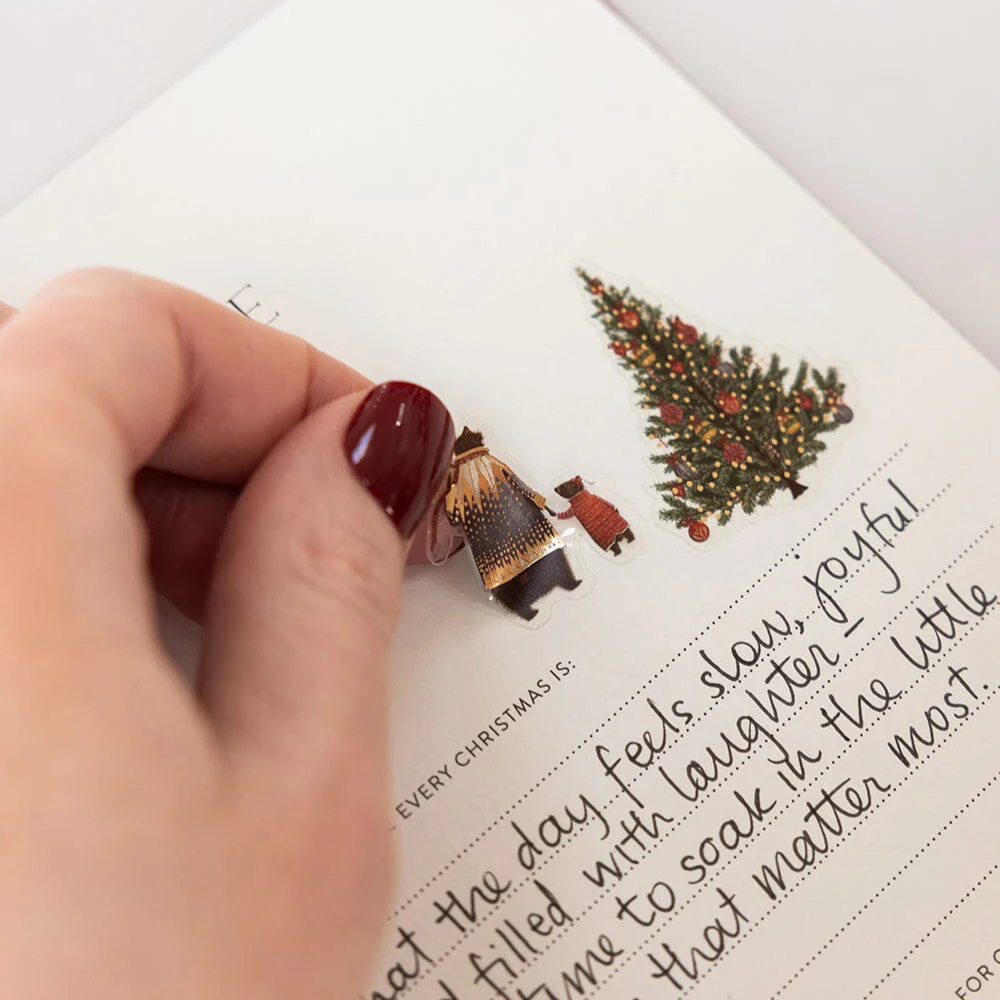 E
EVERY CHRISTMAS IS:
the day feels slow, joyful
filled with laughter –
to soak in the little
that matter most.
FOR